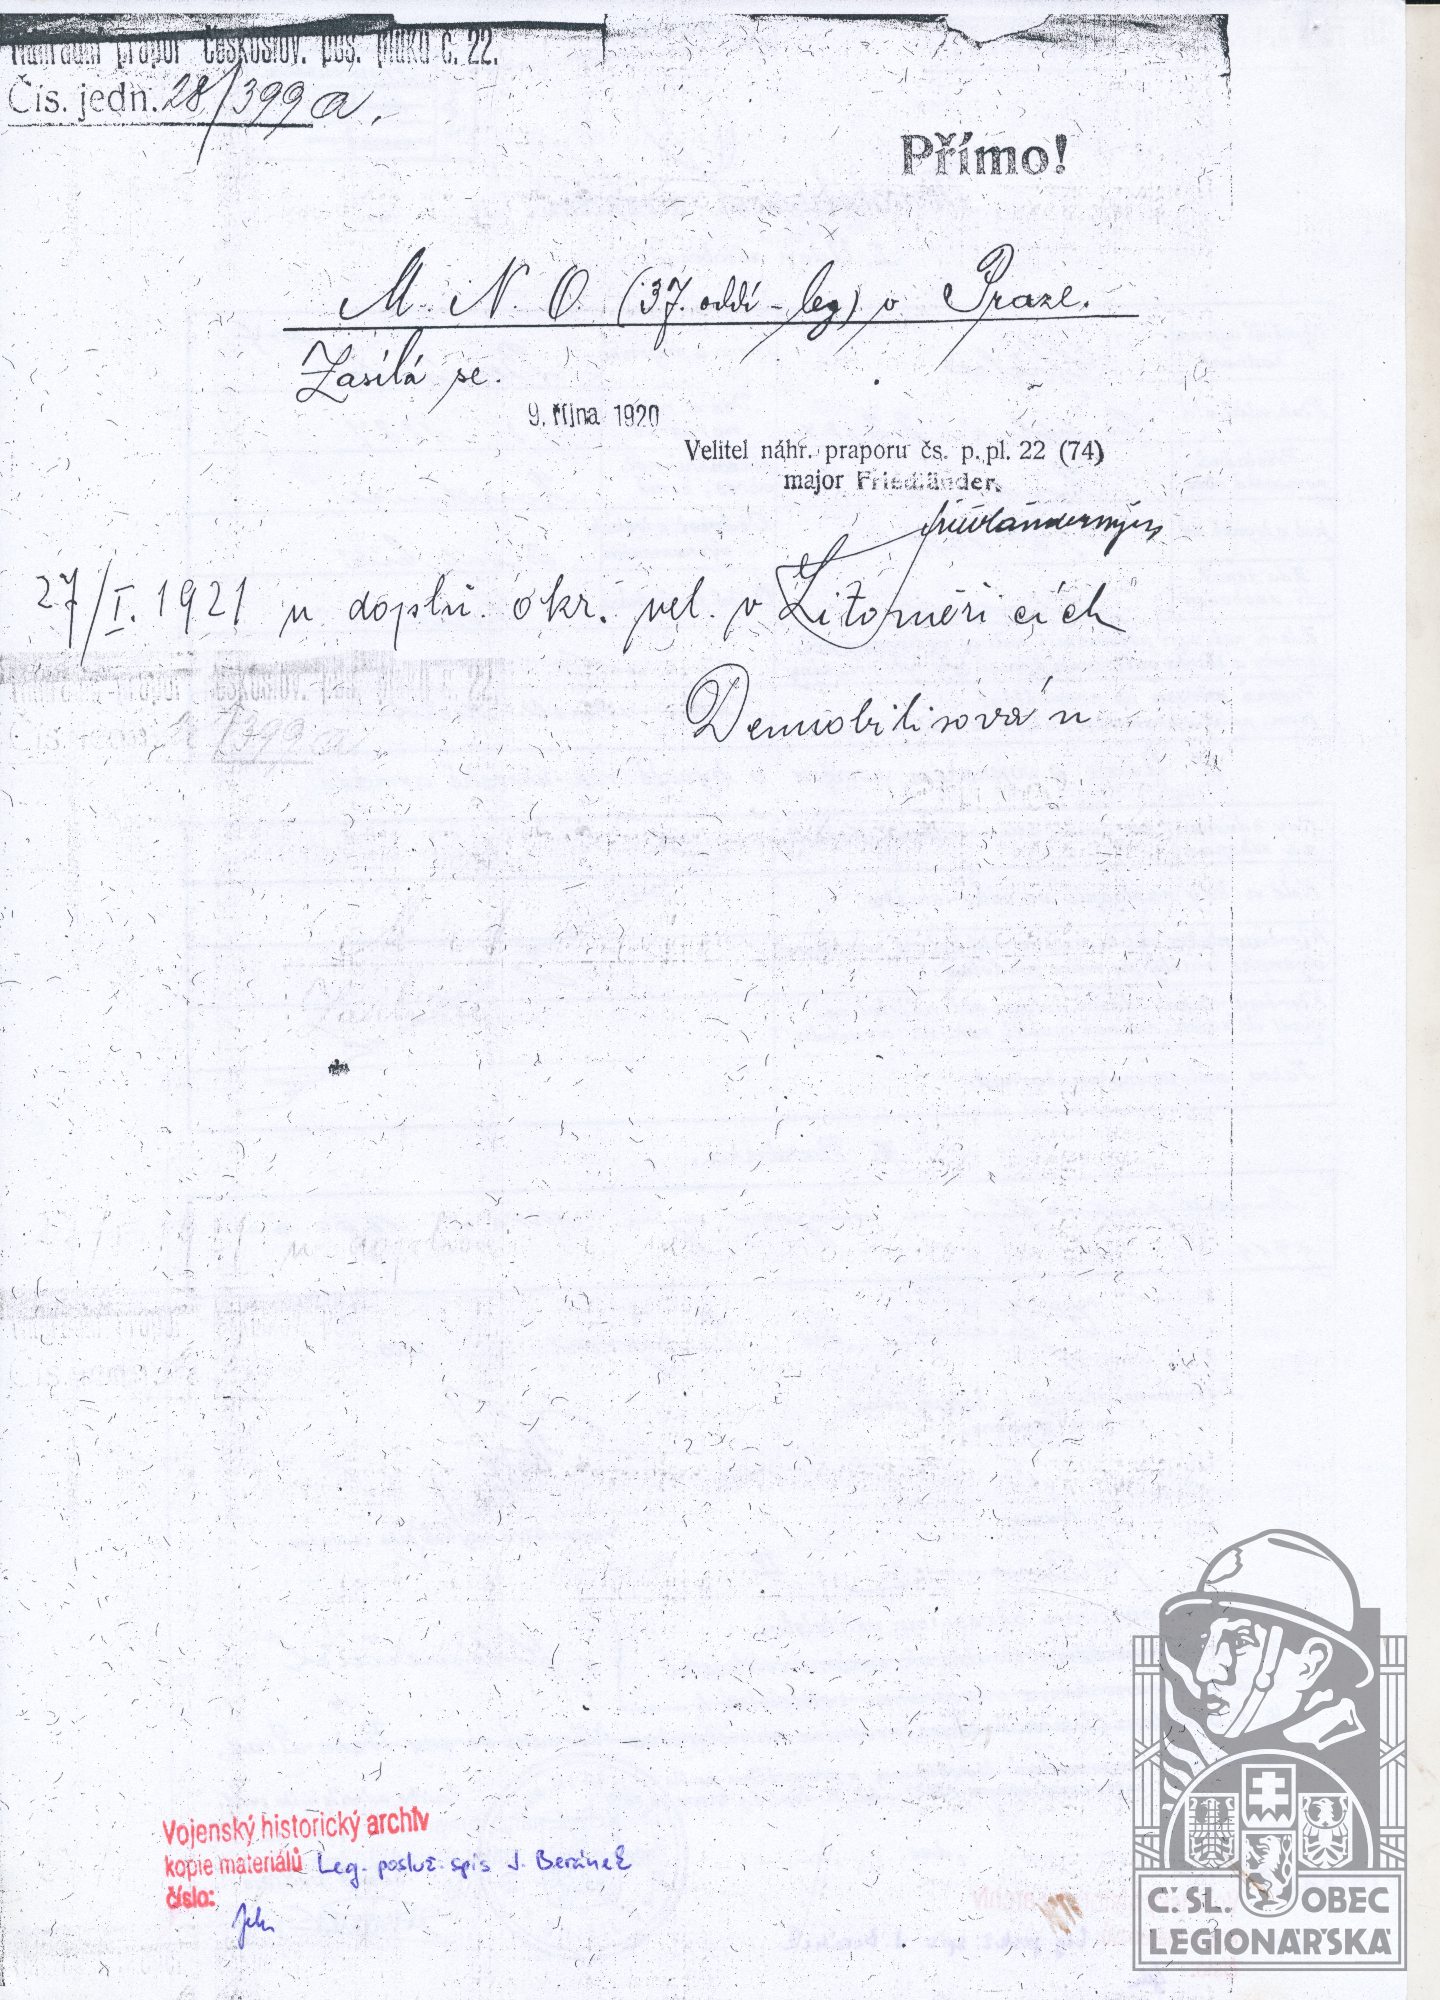 Náhradní prapor Českoslov. pěš. pluku č. 22.
Čís. jedn. 28/399 a.
Přímo!
M. N. O. (37. oddí - leg) v Praze.
Zasílá se.
9. října 1920
Velitel náhr. praporu čs. p. pl. 22 (74)
major Friedländer.
Friedländer
27/I. 1921 u doplň. okr. vel. v Litoměřicích
Demobilisován
Vojenský historický archiv
kopie materiálů Leg. posluž. spis J. Beránek
číslo:
Č. SL. OBEC
LEGIONÁŘSKÁ